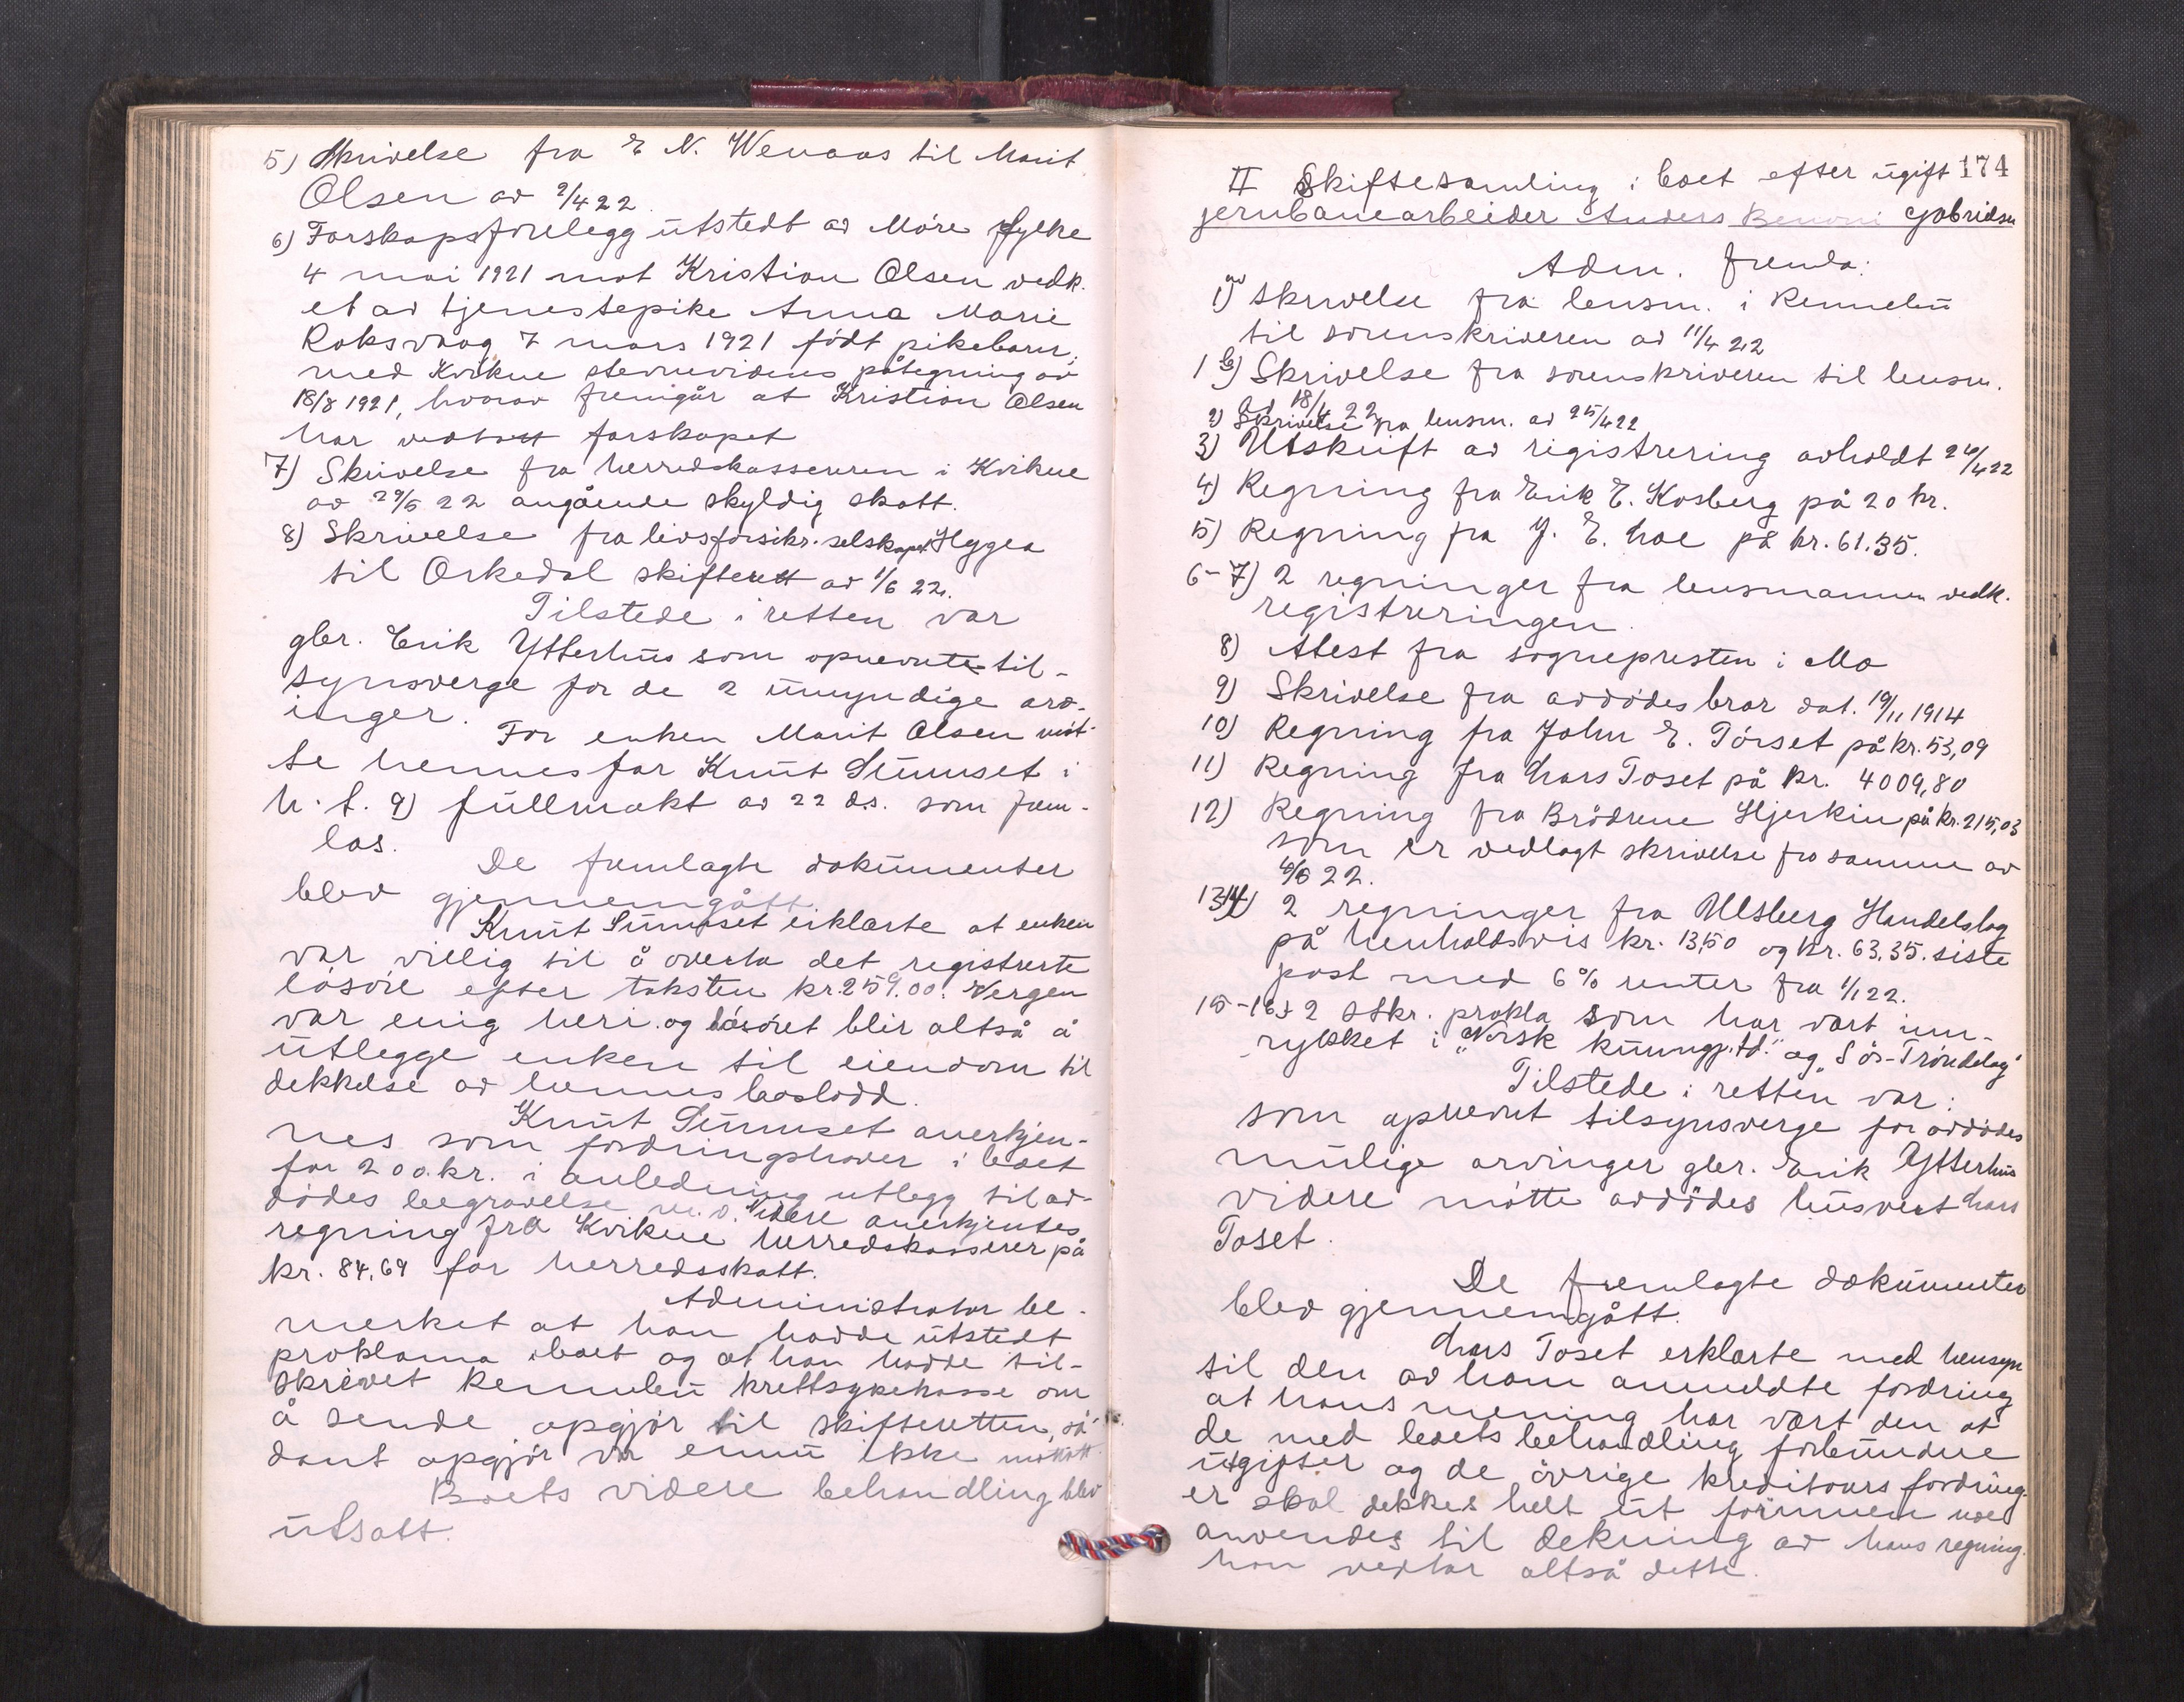 5) Skrivelse fra E N. Wenaas til Marit
Olsen av 2/4 22
6) Farskapsforelegg utstedt av Möre fylke
4 mai 1921 mot Kristian Olsen vedk.
et av tjenestepike Anna Marie
Roksvaag 7 mars 1921 födt pikebarn,
med Kvikne stevnevidnes påtegning av
18/8 1921, hvorav fremgår at Kristian Olsen
har vedtatt farskapet
7) Skrivelse fra herredskassereren i Kvikne
av 29/5 22 angående skyldig skatt.
8) Skrivelse fra livsforsikr. selskapet Hygea
til Orkedal skifterett av 1/6 22.
Tilstede i retten var
gbr. Erik Ytterhus som opnevnte til-
synsverge for de 2 umyndige arv-
inger.
For enken Marit Olsen möt-
te hennes far Knut Sunnset i
h. t. 9) fullmakt av 22 ds. som frem-
las.
De fremlagte dokumenter
blev gjennemgått.
Knut Sunnset erklærte at enken
var villig til å overta det registrerte
lösöre efter taksten kr. 259.00. Vergen
var enig heri og lösöret blir altså å
utlegge enken til eiendom til
dekkelse av hennes boslodd.
Knut Sunnset anerkjen-
nes som fordringshaver i boet
for 200 kr. i anledning utlegg til av-
dödes begravelse m.v. Videre anerkjentes
regning fra Kvikne herredskasserer på
kr. 84,69 for herredsskatt.
Administrator be-
merket at han hadde utstedt
proklama i boet og at han hadde til-
skrevet Rennebu krettsykekasse om
å sende opgjör til skifteretten, så-
dant opgjör var ennu ikke mottatt.
Boets videre behandling blev
utsatt.
174
II Skiftesamling i boet efter ugift
jernbanearbeider Anders Benoni Gabrielsen
Adm. fremla:
1)a) skrivelse fra lensm. i Rennebu
til sorenskriveren av 11/4 22
1 b) Skrivelse fra sorenskriveren til lensm.
av 18/4 22
2) Skrivelse fra lensm. av 25/4 22
3) Utskrift av registrering avholdt 24/4 22
4) Regning fra Erik E. Kosberg på 20 kr.
5) Regning fra J. E. Hoe på kr. 61.35.
6-7) 2 regninger fra lensmannen vedk.
registreringen.
8) Atest fra sognepresten i Mo
9) Skrivelse fra avdödes bror dat. 19/11 1914
10) Regning fra John E. Törset på kr. 53,09
11) Regning fra Lars Toset på kr. 4009,80
12) Regning fra Brödrene Hjerkin på kr. 215,03
som er vedlagt skrivelse fra samme av
6/5 22.
13-14) 2 regninger fra Ulsberg Handelslag
på henholdsvis kr. 13,50 og kr. 63.35. siste
post med 6% renter fra 1/1 22.
15-16) 2 stkr. prokla som har vært inn-
rykket i "Norsk kunngj.td." og "Sör-Tröndelag"
Tilstede i retten var:
som opnevnt tilsynsverge for avdödes
mulige arvinger gbr. Erik Ytterhus
videre mötte avdödes husvert Lars
Toset.
De fremlagte dokumenter
blev gjennemgått.
Lars Toset erklærte med hensyn
til den av ham anmeldte fordring
at hans mening har vært den at
de med boets behandling forbundne
utgifter og de övrige kreditors fordring-
er skal dekkes helt ut forinnen noe
anvendes til dekning av hans regning.
han vedtar altså dette.